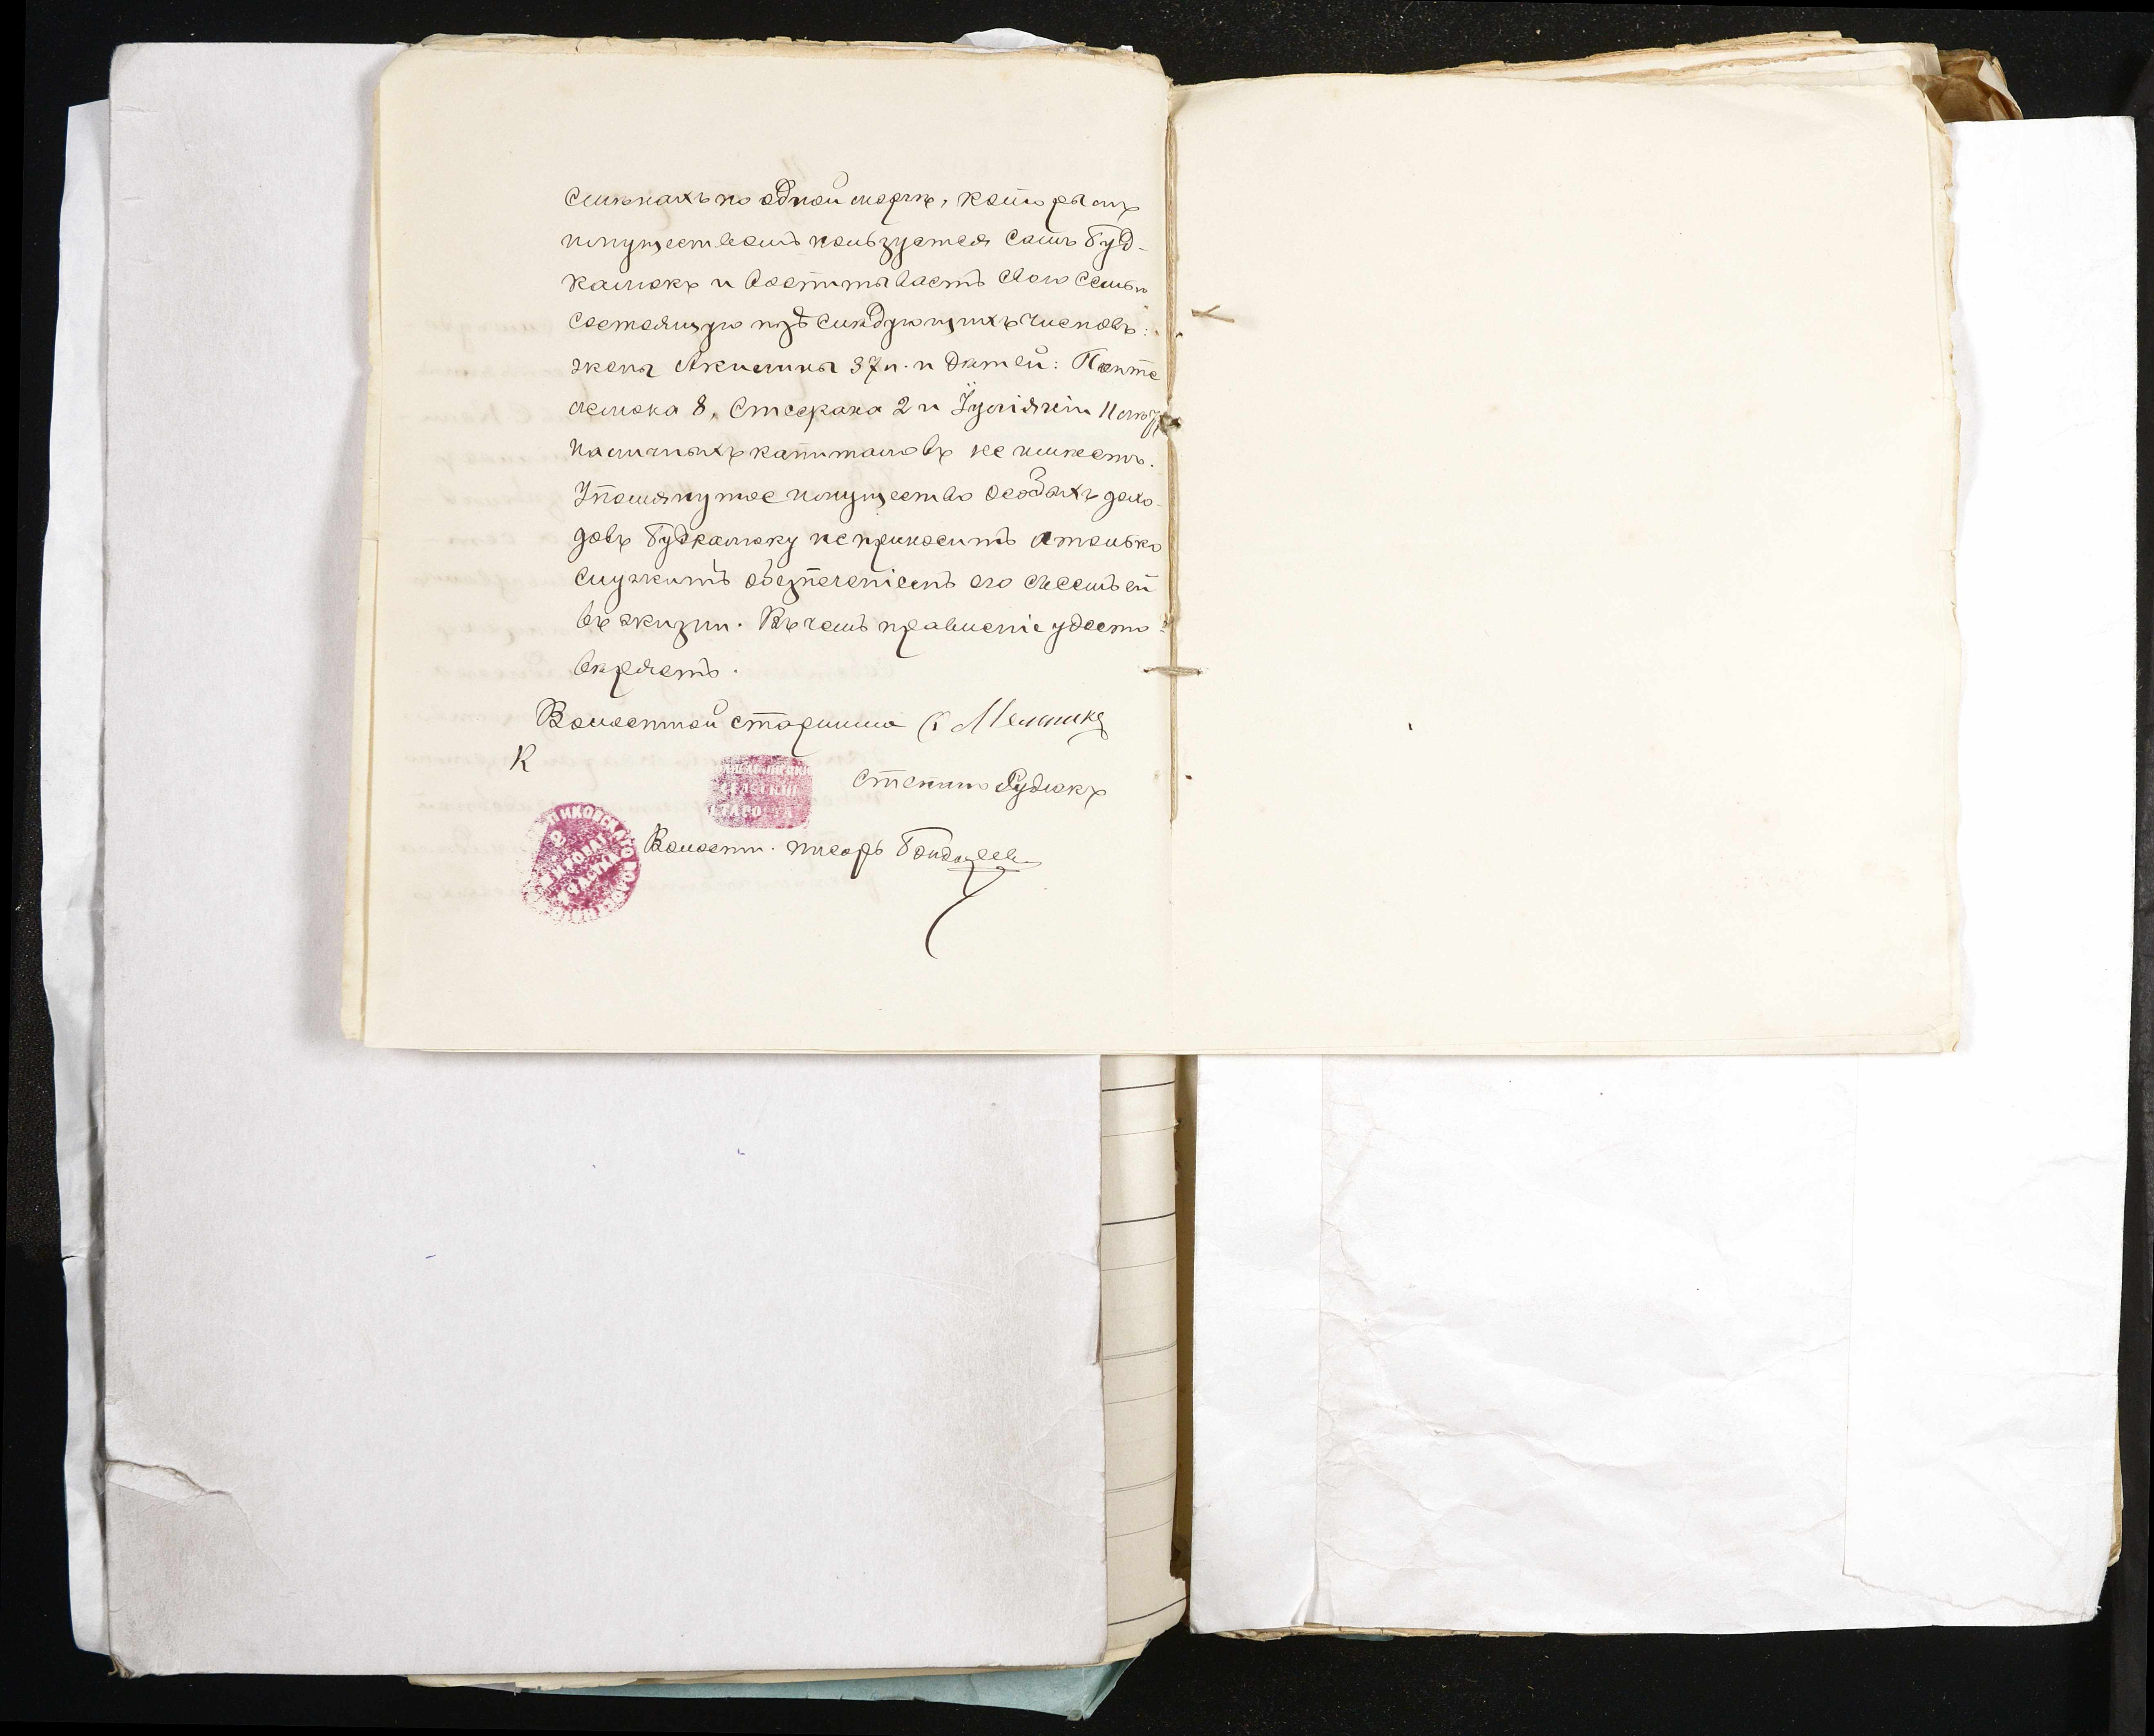 смѣнахъ по одной моргѣ, которымъ
имуществомъ пользуется самъ Буд-
калюкъ и воспитываетъ свою семью
состоящую изъ слѣдующихъ членовъ:
жены Акилины 37 л. и дѣтей: Панте
леймона 8, Стефана 2 и 11 лѣтъ
наличныхъ капиталовъ не имѣетъ.
Упомянутое имущество особыхъ дохо-
довъ Будкалюку не приноситъ а только
служитъ обезпеченіемъ его съ семьей
въ жизни. Въ чемъ правленіе удосто-
вѣряетъ.
Волостной старшина Мельникъ
К
Степанъ Рудюкъ
СЕЛЬСКІЙ
СТАРОСТА
Волостн. писарь